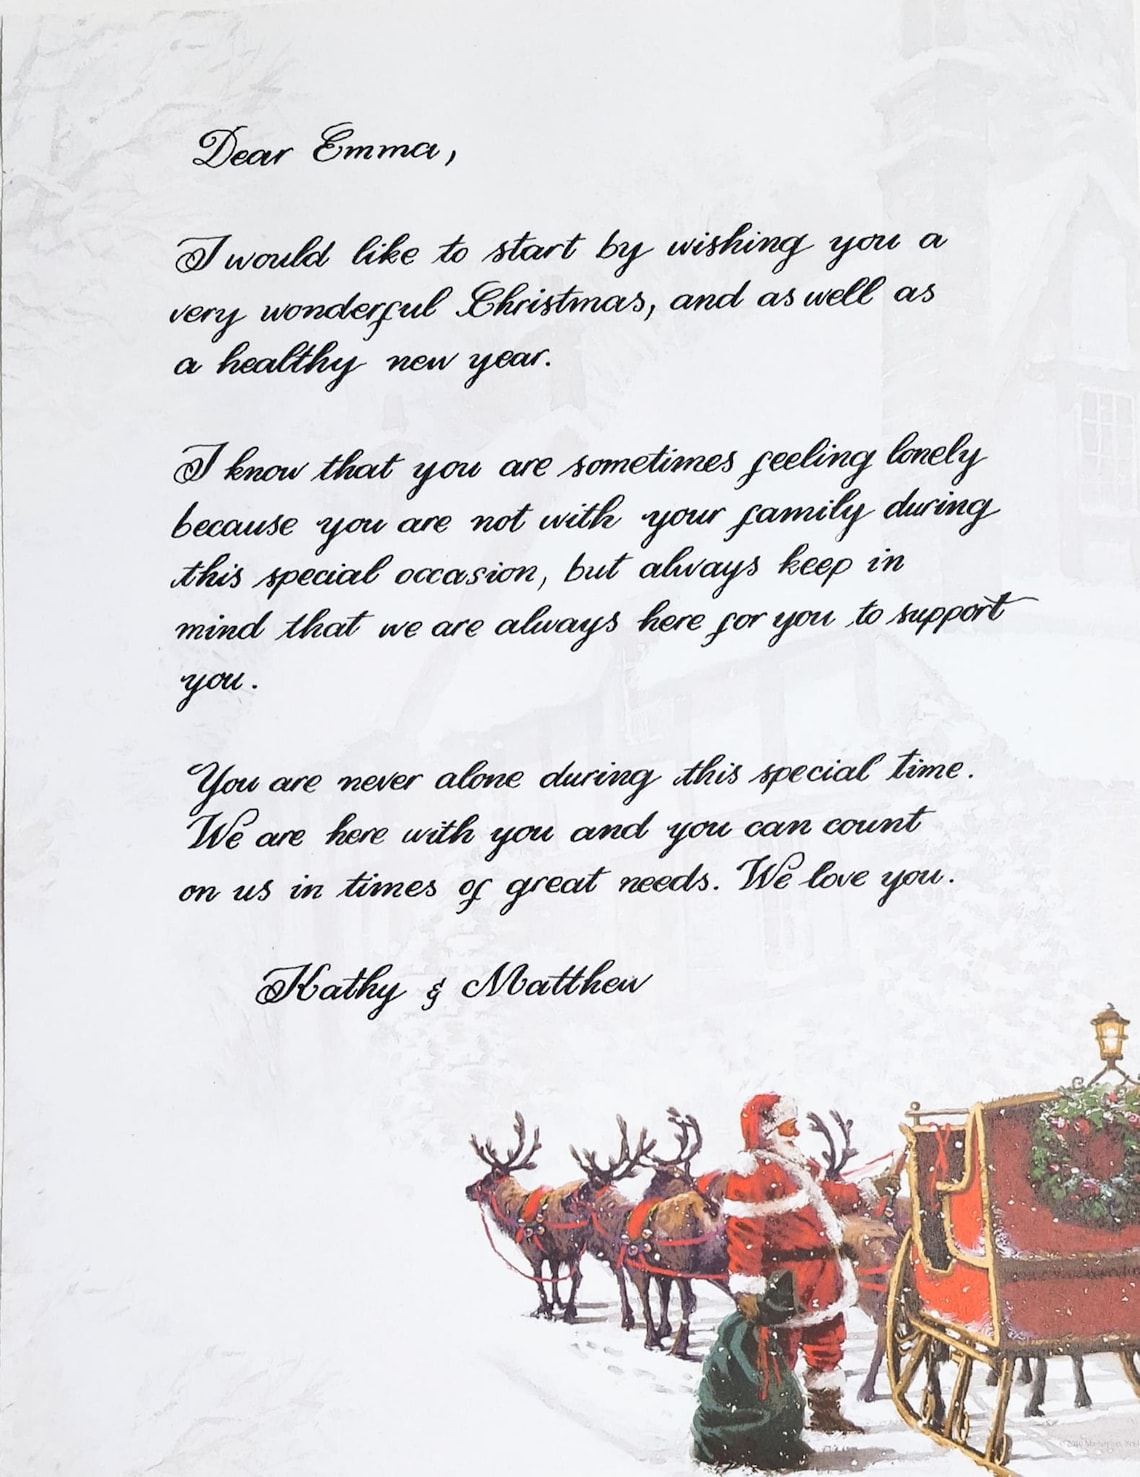 Dear Emma,
I would like to start by wishing you a
very wonderful Christmas, and as well as
a healthy new year.
I know that you are sometimes feeling lonely
because you are not with your family during
this special occasion, but always keep in
mind that we are always here for you to support
you.
You are never alone during this special time.
We are here with you and you can count
on us in times of great needs. We love you.
Kathy & Matthew